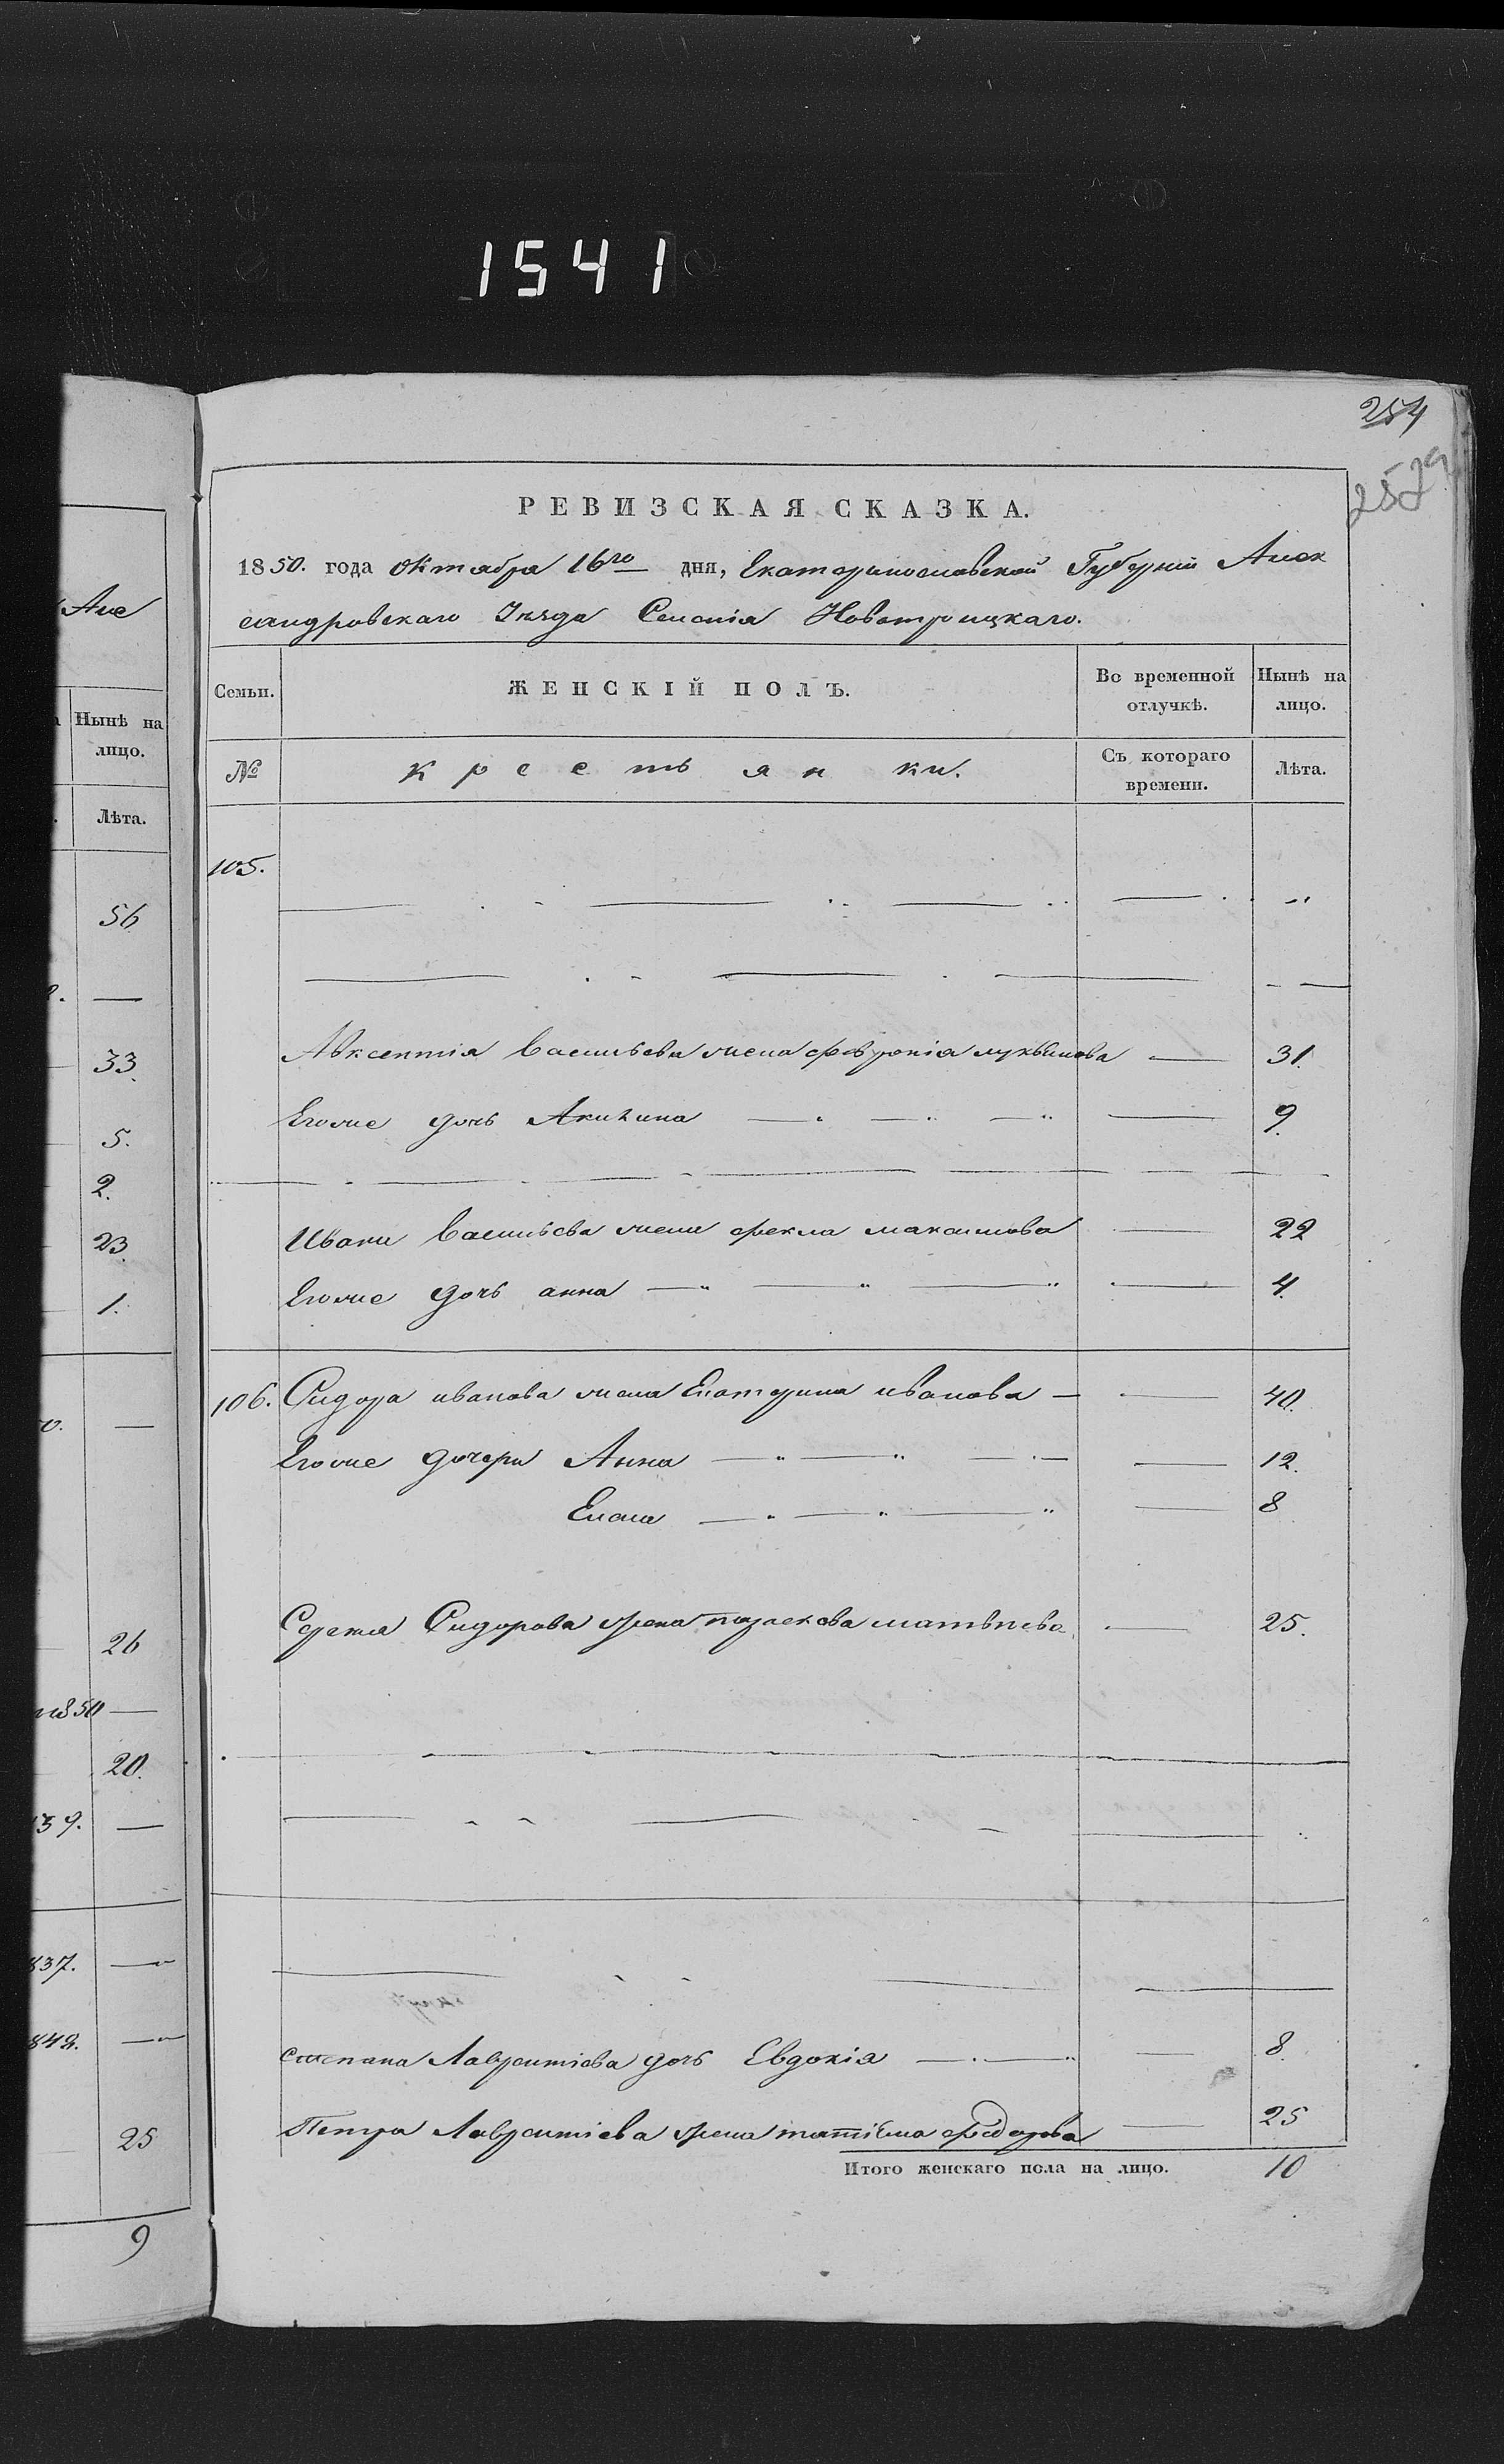 1541
254
252
РЕВИЗСКАЯ СКАЗКА.
1850. года Октября 16го дня, Екатеринославской Губерніи Алек
сандровскаго Уезда Селенія Новотроицкаго.
Але
Семьи. ЖЕНСКІЙ ПОЛЪ. Во временной отлучкѣ. Нынѣ на лицо.
№ Крестьянки. Съ котораго времени. Лѣта.
Нынѣ на
лицо.
Лѣта.
56
33
5.
2.
23
1.
26
1850
20.
39.
837.
842.
25
9
105.
Авксентія Васильева жена февронія лукьянова 31.
Егоже дочь Акилина 9.
Ивана Васильева жена фекла максимова 22
Егоже дочь анна 4.
106. Сидора иванова жена Екатерина иванова 40.
Егоже дочери Анна 12.
Елена 8
Сергея Сидорова жена параскова матвѣева 25.
степана Лаврентіева дочь Евдокія 8.
Петра Лаврентіева жена татіяна федорова 25
Итого женскаго пола на лицо. 10